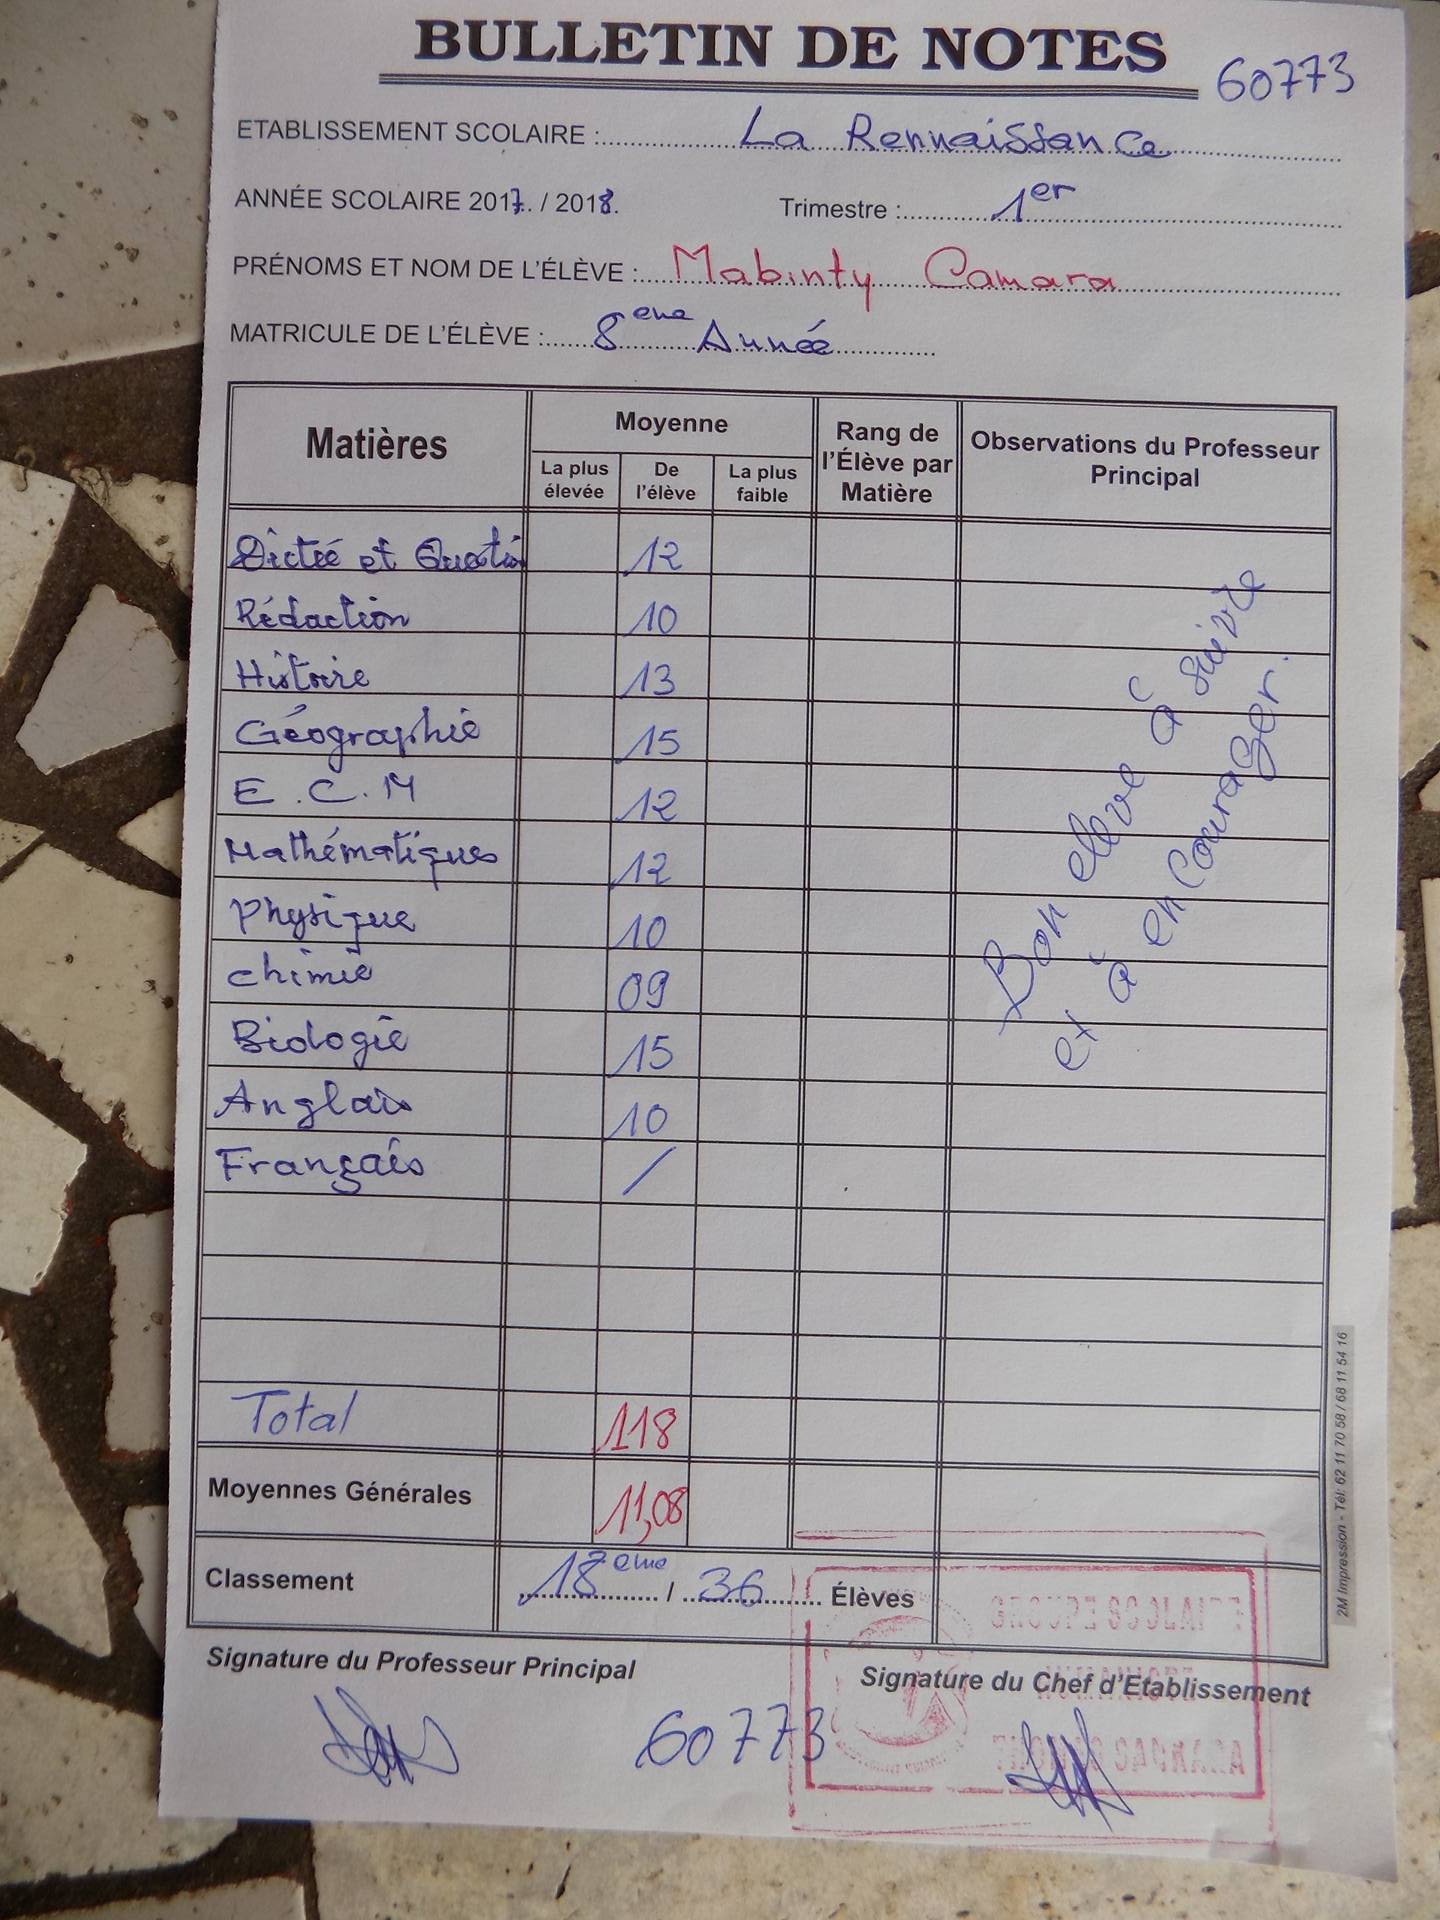 BULLETIN DE NOTES
60773
ETABLISSEMENT SCOLAIRE : La Rennaissance
ANNÉE SCOLAIRE 2017 / 2018. Trimestre : 1er
PRÉNOMS ET NOM DE L'ÉLÈVE : Mabinty Camara
MATRICULE DE L'ÉLÈVE : 8eme Année
Matières
Moyenne
La plus élevée
De l'élève
La plus faible
Rang de l'Élève par Matière
Observations du Professeur Principal
Dictée et Questi 12
Rédaction 10
Histoire 13
Géographie 15
E.C.M 12
Mathématiques 12
Physique 10
chimie 09
Biologie 15
Anglais 10
Français /
Bon eleve à suivre
et à encourager.
Total 118
Moyennes Générales 11,08
Classement 18eme / 36 Élèves
Signature du Professeur Principal
Signature du Chef d'Etablissement
60773
2M Impression - Tél: 62 11 70 58 / 68 11 54 16